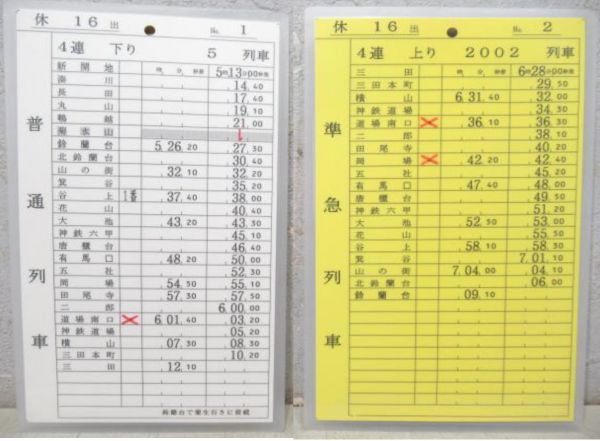 休 16 出 No. 1
4連 下り 5 列車
普通列車
新開地 5時13分00秒
湊川 14.40
長田 17.40
丸山 19.10
鵯越 21.00
鈴蘭台 5.26.20 27.30
北鈴蘭台 30.40
山の街 32.10 32.20
箕谷 35.20
谷上 1番 37.40 38.00
花山 40.40
大池 43.20 43.30
神鉄六甲 45.10
唐櫃台 46.40
有馬口 48.20 50.00
五社 52.30
岡場 54.50 55.10
田尾寺 57.30 57.50
二郎 6.00.00
道場南口 6.01.40 03.20
神鉄道場 05.20
横山 07.30 08.30
三田本町 10.20
三田 12.10
休 16 出 No. 2
4連 上り 2002 列車
準急列車
三田 時 分 秒着 6時28分00秒
三田本町 29.50
横山 6.31.40 32.00
神鉄道場 34.30
道場南口 36.10 36.30
二郎 38.10
田尾寺 40.20
岡場 42.20 42.40
五社 45.20
有馬口 47.40 48.00
唐櫃台 49.50
神鉄六甲 51.20
大池 52.50 53.00
花山 55.50
谷上 58.10 58.30
箕谷 7.01.10
山の街 7.04.00 04.10
北鈴蘭台 06.00
鈴蘭台 09.10